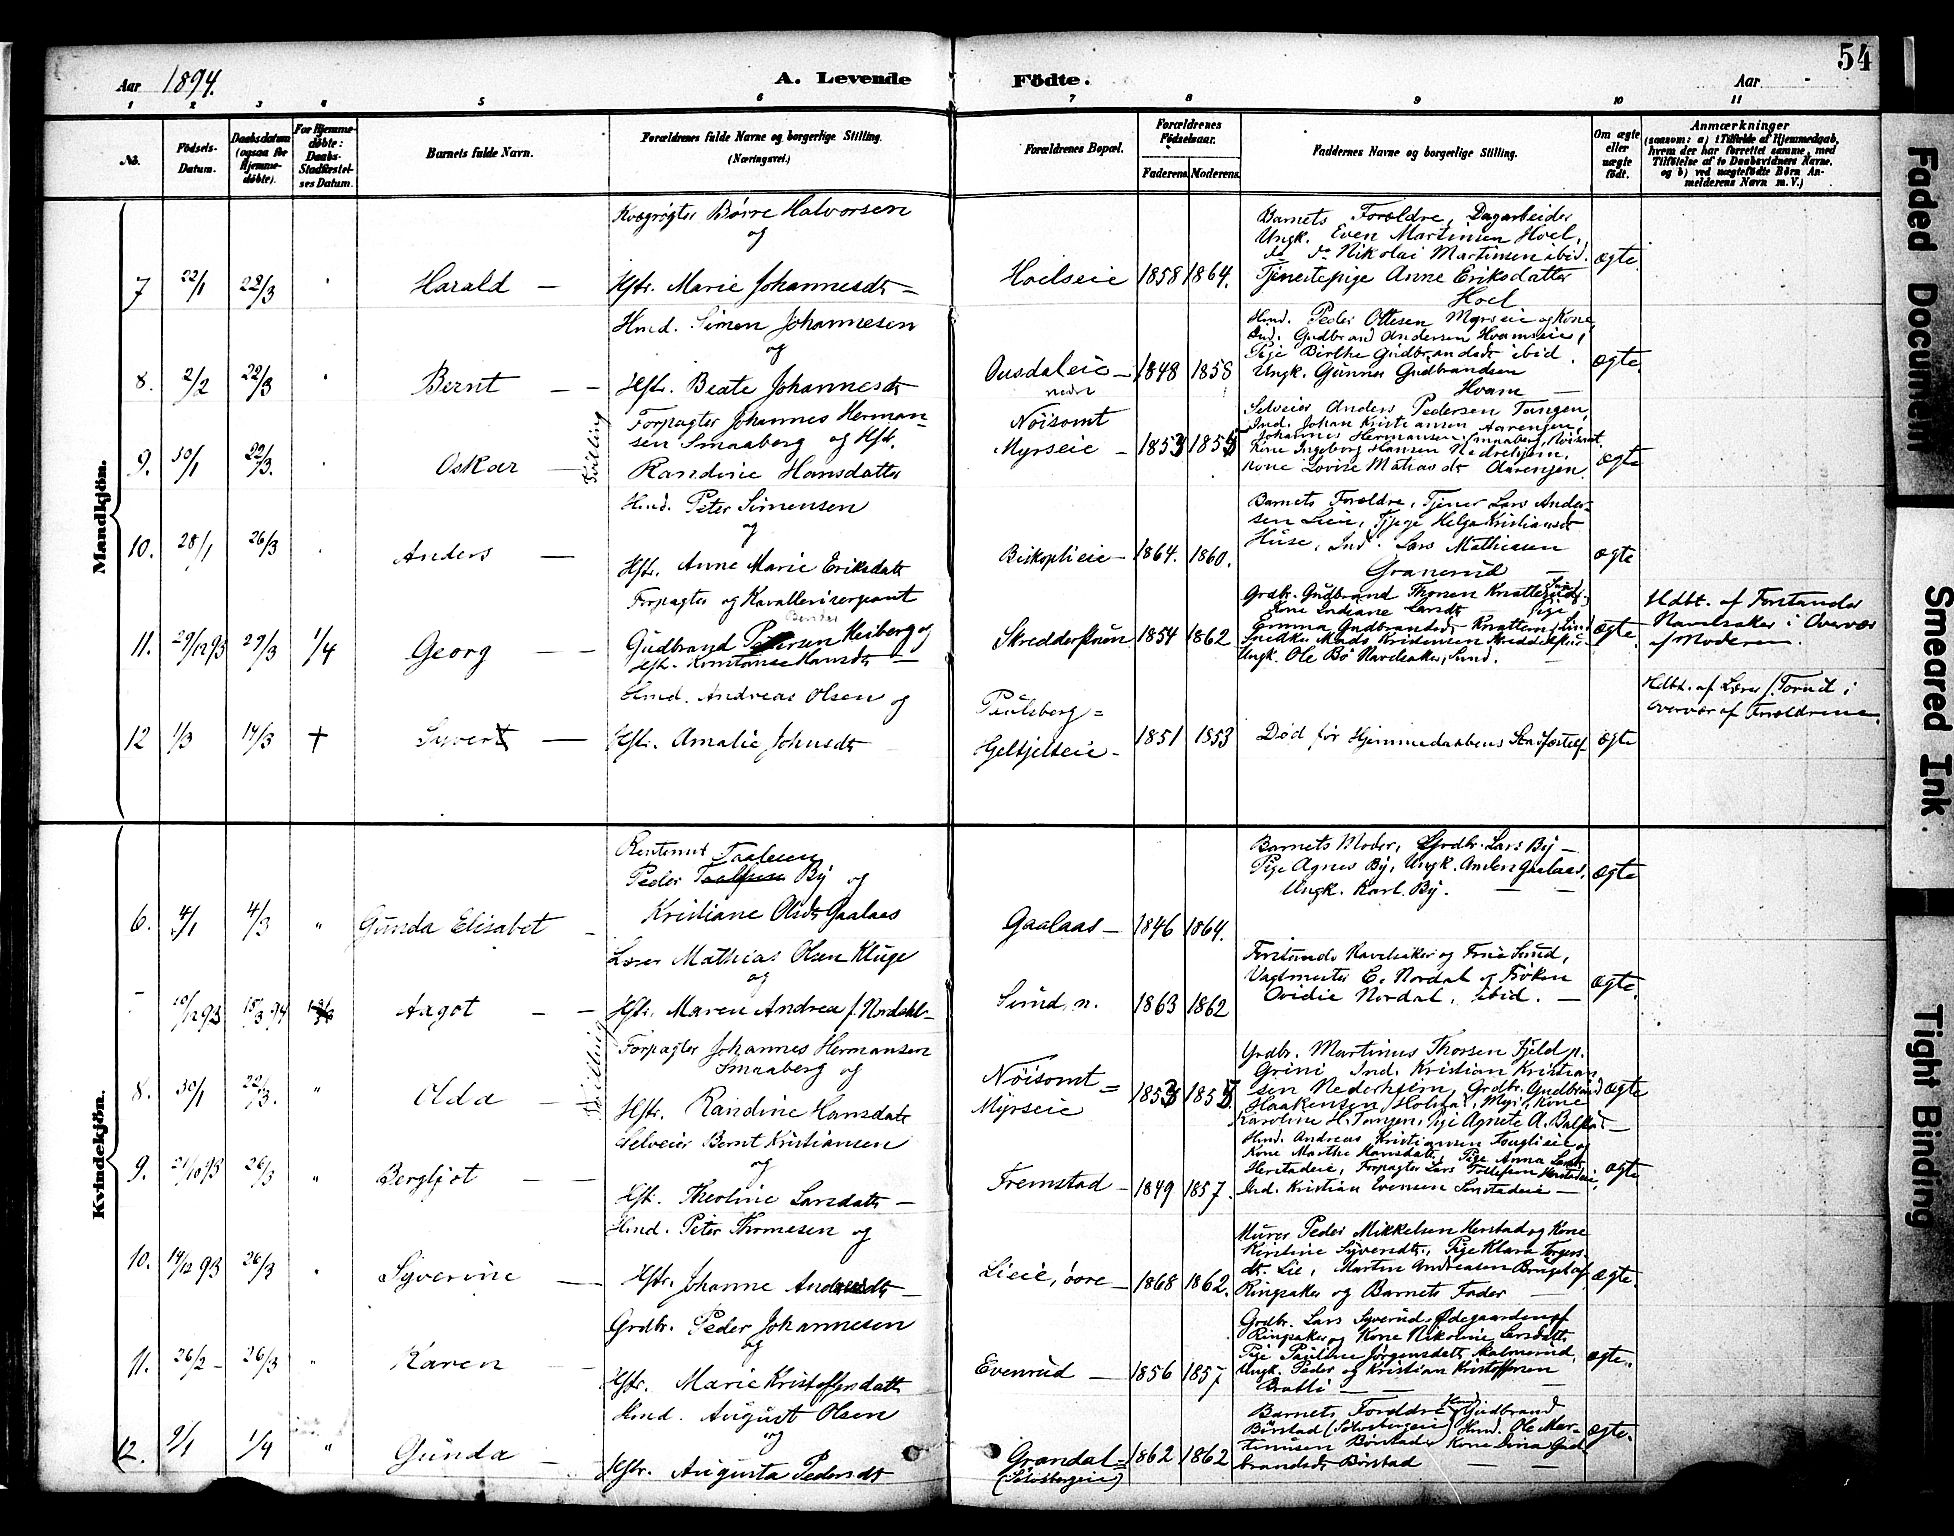 54
Aar 1894.
A. Levende Födte.
Aar
1 2 3 4 5 6 7 8 9 10 11
No.
Födsels-Datum.
Daabsdatum (ogsaa for Hjemme-döbte).
For Hjemme-döbte: Daabs-Stadfæstel-ses Datum.
Barnets fulde Navn.
Forældrenes fulde Navne og borgerlige Stilling. (Næringsvei.)
Forældrenes Bopæl.
Forældrenes Födselsaar.
Faderens. Moderens.
Faddernes Navne og borgerlige Stilling.
Om ægte eller uægte födt.
Anmærkninger
(saasom: a) i Tilfælde af Hjemmedaab, hvem der har forrettet samme, med Tilföielse af to Daabsvidners Navne, og b) ved uægtefödte Börn An-melderens Navn m. V.)
Mandkjön.
7 22/1 22/3 Harald —
Kvægrögter Börre Halvorsen
og
Hstr. Marie Johannesdt =
Hoelseie 1858 1864.
Barnets Forældre, Dagarbeider
Ungk. Even Martinsen Hoel,
do do Nikolai Martinsen ibid.
Tjenestepige Anne Eriksdatter
Hoel
ægte.
8. 2/2 22/3 Bernt — —
Hmd. Simen Johannesen
og
Hstr. Beate Johannesdt
Ousdaleie — 1848 1858
nedre
Hmd. Peder Ottesen Myrseie og Kone,
Ind. Gudbrand Andersen Hvamseie,
Pige Birthe Gudbrandsdt ibid.
Ungk. Gunnar Gudbrandsen
Hvam —
ægte.
9. 30/1 22/3. Oskar — Tvilling
Forpagter Johannes Herman-
sen Smaaberg og Hst.
Randine Hansdatter
Nöisomt
Myrseie — 1853 1855
Selveier Anders Pedersen Tangen,
Ind. Johan Kristiansen Aarengen,
Johannes Hermansen Smaaberg, Nöisomt,
Kone Ingeborg Hansen Nedreheim,
Kone Lovise Mathiasdt Aarengen
ægte
10. 28/1 26/3 Anders —
Hmd. Peter Simensen
og
Hstr. Anne Marie Eriksdatt
Biskopslieie — 1864. 1860.
Barnets Forældre, Tjener Lars Ander-
sen Lieie, Tjpige Helga Kristiansdt
Huse, Ind. Lars Mathiesen
Granerud —
ægte
11. 29/12 93 27/3 1/4 Georg — —
Forpagter og Kavalleriserjeant
Gudbrand Pedersen Heiberg og
Hst. Konstanse Hansdt —
1854 1862
Grdbr. Gudbrand Thorsen Knatterud,
Kone Indiane Larsdt — Pige
Emma Gudbrandsdt Knatterud, Sund
Snedker Mads Kristensen
Ungk. Ole Bö Navelsaker, Sund. —
ægte.
Hdbt. af Forstander
Navelsaker i Overvær
af Moderen.
12 1/3 14/3 + Syvert —
Hmd. Andreas Olsen og
Hstr. Amalie Johnsdt
Paulsberg =
Gjelstjelseie — 1851 1853
Död för Hjemmedaabens Stadfæstelse
ægte
Hdbt. af Lærer J. Torud i
Overvær af Forældrene.
Kvindekjön.
6. 4/1 4/3 " Gunda Elisabet —
Rentenist Taalesen
Peder By og
Kristiane Olsdt Gaalaas
Gaalaas — 1846 1864.
Barnets Moder, Grdbr. Lars By —
Pige Agnes By, Ungk. Anders Gaalaas,
Ungk. Karl By. — —
ægte
- 10/12 93 15/3 94 Aagot — —
Lærer Mathias Olsen Kluge
og
Hstr. Maren Andrea f. Nordahl —
Sund, n. 1863 1862
Forstander Navelsaker og Frue Sund,
Vagtmester C. Nordal og Fröken
Ovidie Nordal, ibid. —
ægte.
8. 30/1 22/3. " Olda — Tvilling
Forpagter Johannes Hermansen
Smaaberg og
Hstr. Randine Hansdatt
Nöisomt =
Myrseie 1853 1855.
Grdbr. Martinus Thorsen Fjeld p.
Grini Ind. Kristian Kristian-
sen Nederheim, Grdbr. Gudbrand
Haakensen Holstad Myr, Kone
Karoline H. Tangen, Pige Agnete A. —
ægte
9. 21/10 93 26/3 " Bergljot — —
Selveier Bernt Kristiansen
og
Hst. Theoline Larsdatt —
Fremstad — 1849 1857.
Hmd. Andreas Kristiansen Fouglieie og
Kone Marthe Hansdatt, Pige Anna Larsdt
Herstadeie, Forpagter Lars Tollefsen Herstadeie,
Ind. Kristian Evensen Sonstadeie —
ægte
10. 14/12 93 26/3 " Syverine —
Hmd. Peter Thomesen og
Hstr. Johanne Andersdt —
Lieie, övre — 1868 1862.
Murer Peder Mikkelsen Herstad og Kone
Kirstine Syversdtr., Pige Klara Torgers-
dt. Lie, Martin Andreasen af
Ringsaker og Barnets Fader —
ægte.
11. 26/2 — 26/3 " Karen — —
Grdbr. Peder Johannesen
og
Hstr. Marie Kristoffersdatt
Evenrud — 1856 1857
Grdbr. Lars Syverud Ödegaarden af
Ringsaker og Kone Nikoline Larsdatt,
Pige Pauline Jörgensdatt,
Ungk. Peder og Kristian Kristoffersen
Bratli — —
ægte.
12. 9/1 1/4 " Gunda —
Hmd. August Olsen
og
Hstr. Augusta Pedersdt
Grandal =
(Solvbergeie) 1862 1862
Barnets Forældre, Hmd. Gudbrand
Börstad (Solvbergeie) Hmd. Ole Mar-
tinusen Börstad, Kone Dina Gud-
brandsdt Börstad — —
ægte.
Faded Document
Smeared Ink.
Tight Binding